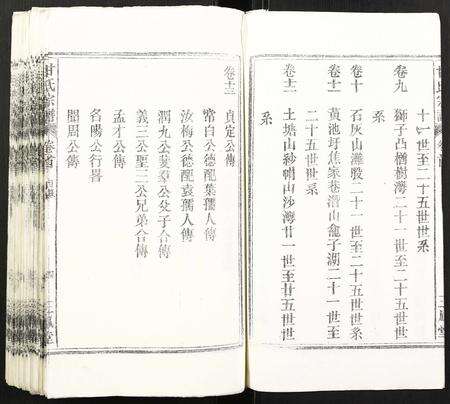 十一世至二十五世世系
卷九
獅子凸檀樹灣二十一世至二十五世世系
卷十
石灰山灘股二十一世至二十五世世系
卷十一
黃池圩焦家巷潛山龕子湖二十一世至
二十五世世系
卷十二
土塘山紗帽山沙灣廿一世至廿五世世
系
三鳳堂
甘氏宗譜
卷首
目錄
四
三鳳堂
卷十三
貞定公傳
常白公德配葉孺人傳
汝梅公德配袁孺人傳
潤九公裴羣公父子合傳
義三公聖三公兄弟合傳
孟才公傳
名暘公行畧
闇周公傳